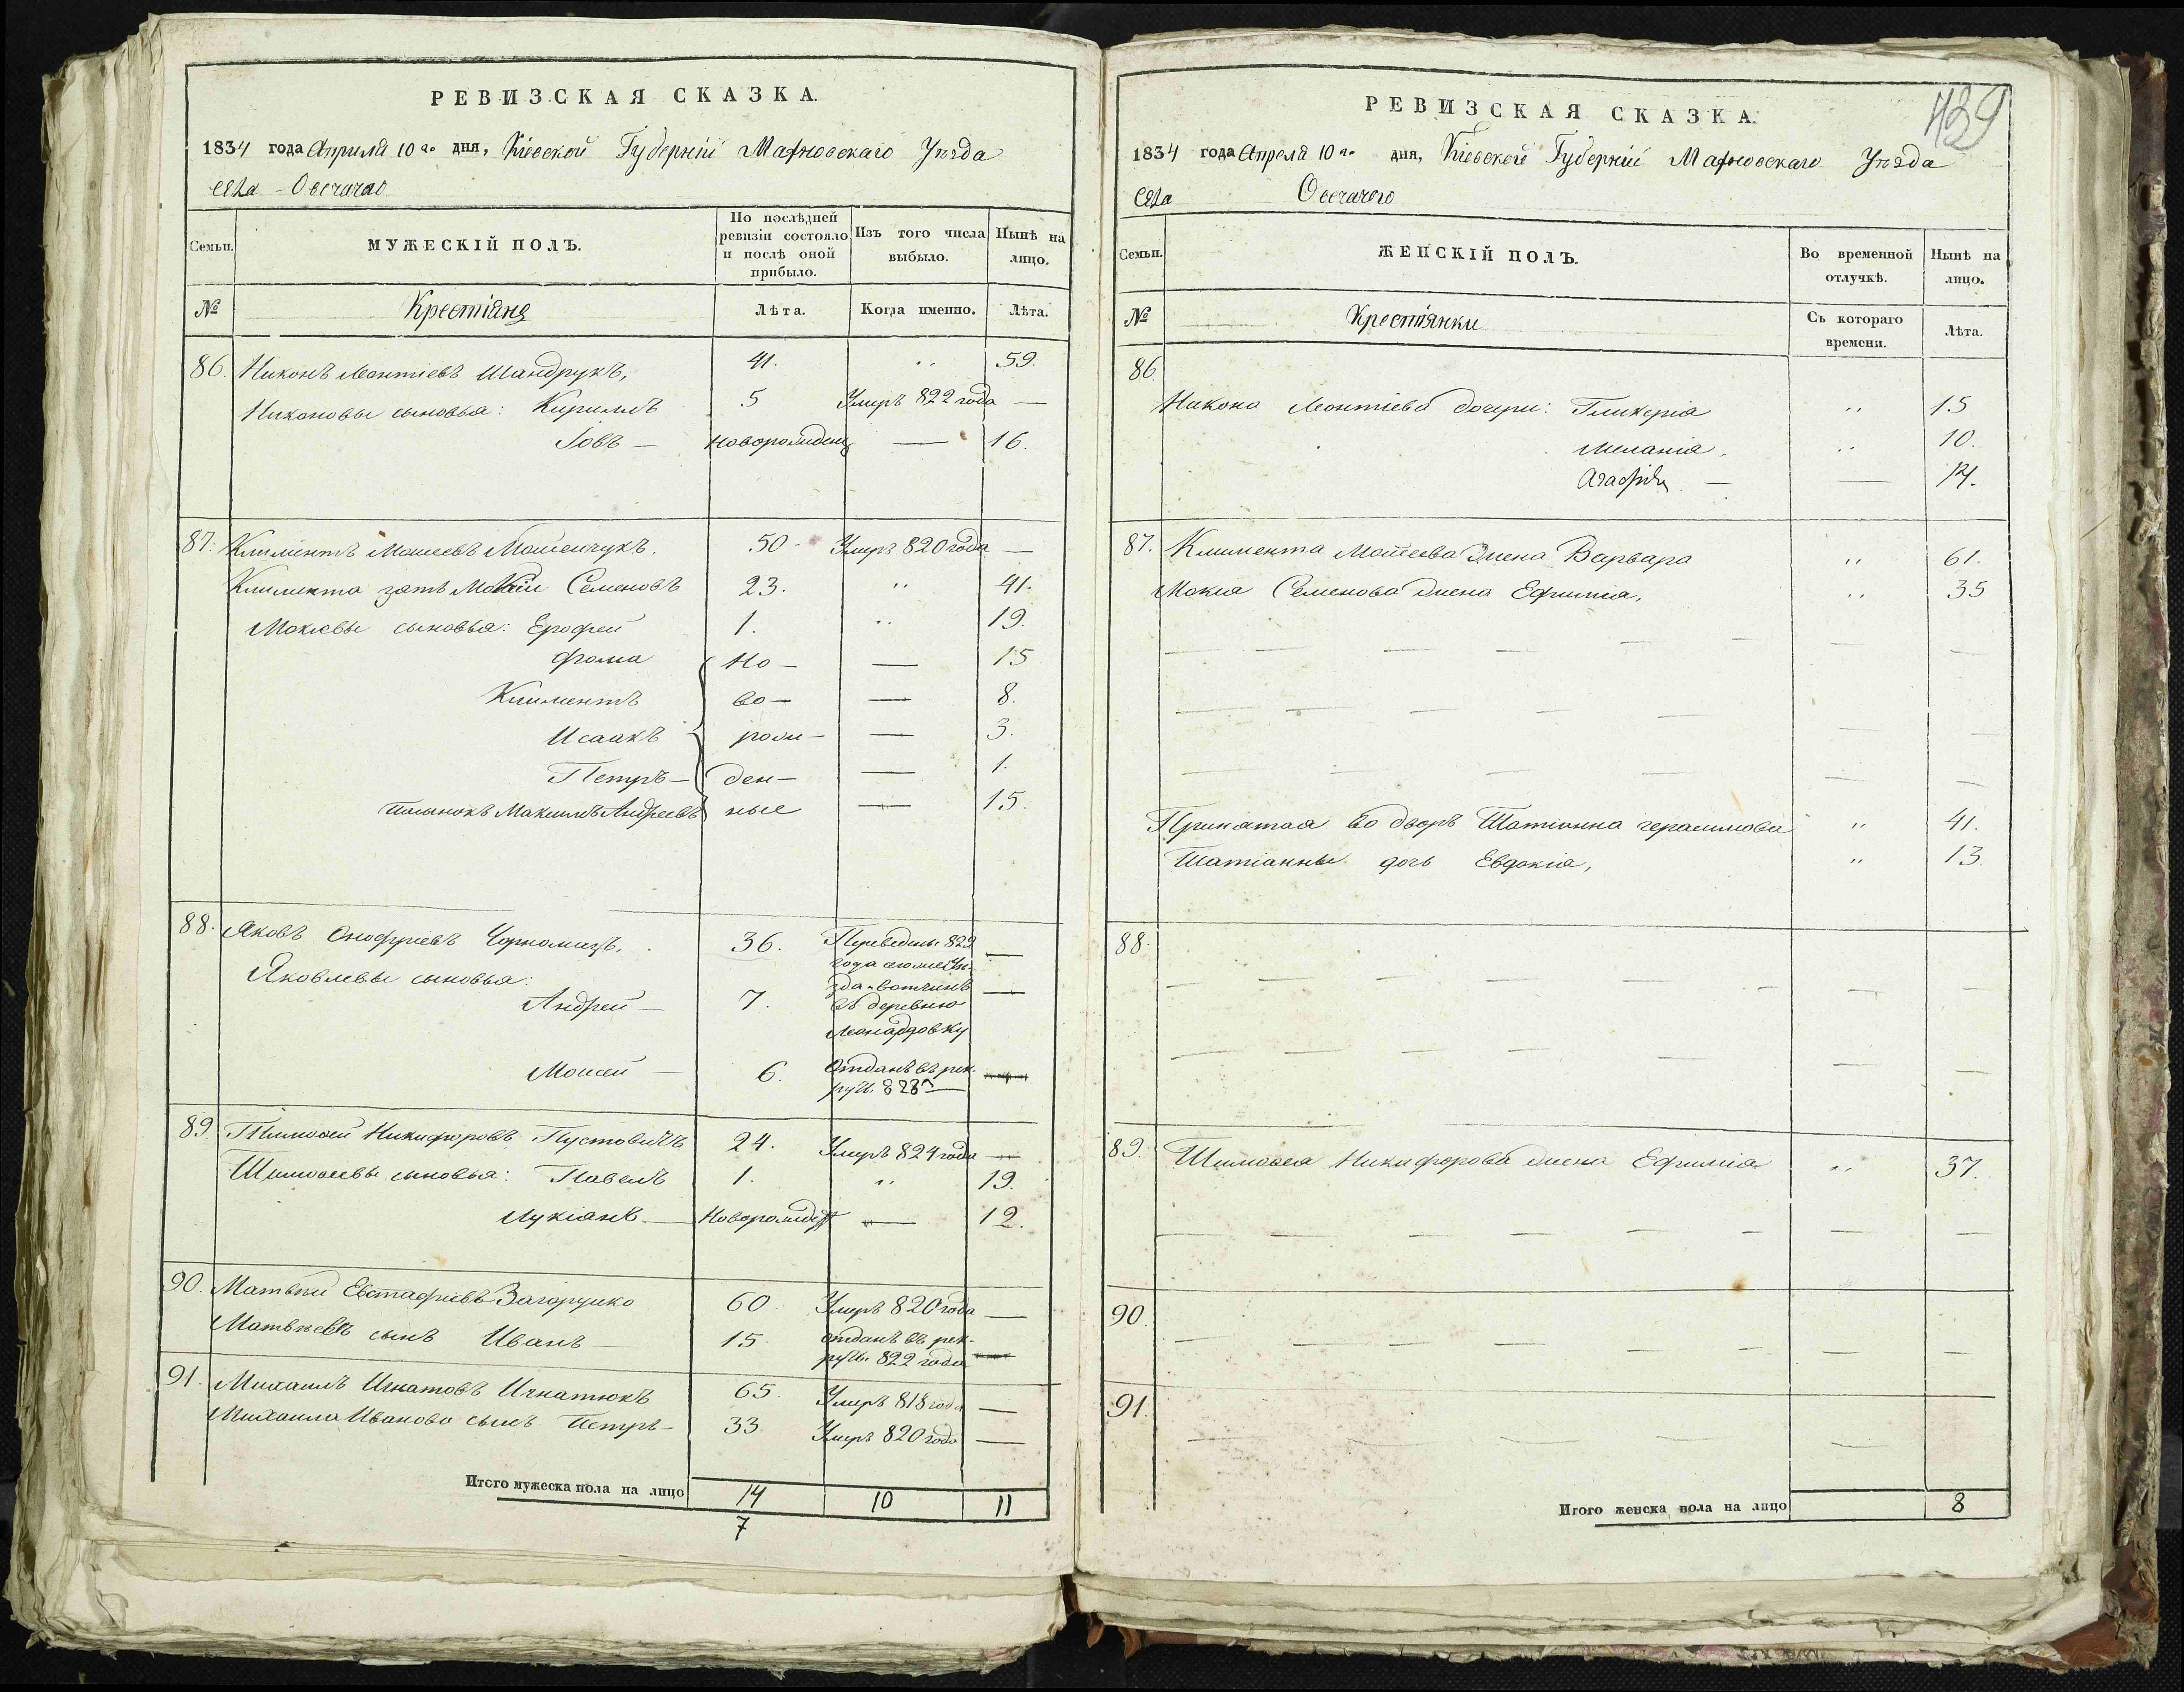 РЕВИЗСКАЯ СКАЗКА.
1834 года Апреля 10го дня, Кіевской Губерніи Махновскаго Уѣзда
села Овсчачаго
Семьи.
МУЖЕСКІЙ ПОЛЪ.
По послѣдней ревизіи состояло и послѣ оной прибыло.
Изъ того числа выбыло.
Нынѣ на лицо.
№
Крестіяне
Лѣта.
Когда именно.
Лѣта.
86. Никонъ Леонтіевъ Шандрукъ, 41. „ 59.
Никоновы сыновья: Кириллъ 5 Умеръ 822 года —
Іовъ — новорожден — 16.
87. Климентъ Моисеевъ Мойсейчукъ. 50 - Умеръ 820 года —
Климента зять Мокій Семеновъ 23. „ 41.
Мокіевы сыновья: Ерофей 1. „ 19.
Фома но— — 15
Климентъ во— — 8.
Исаакъ рож— — 3.
Петръ — ден— — 1.
Максимъ Андреевъ ные — 15.
88. Яковъ Онофріевъ Чорномазъ, 36. Переведены 829 —
Яковлевы сыновья: года
Андрей — 7. въ деревню —
Леонардовку
Моисей — 6. Отданъ въ рек-
руты 828
89. Тимофей Никифоровъ Пустовитъ 24. Умеръ 824 года —
Тимофеевы сыновья: Павелъ 1. „ 19.
Лукіанъ — Новорожден — 12.
90. Матвѣй Евстафіевъ Загоруйко 60. Умеръ 820 года —
Матвѣевъ сынъ Иванъ — 15. отданъ въ рек-
руты 822 года
91. Михаилъ Игнатовъ Игнатюкъ 65. Умеръ 818 года —
Михаила Иванова сынъ Петръ — 33. Умеръ 820 года —
Итого мужеска пола на лицо 14 10 11
7
439
РЕВИЗСКАЯ СКАЗКА.
1834 года Апреля 10го дня, Кіевской Губерніи Махновскаго Уѣзда
села Овсчачаго
Семьи.
ЖЕНСКІЙ ПОЛЪ.
Во временной отлучкѣ.
Нынѣ на лицо.
№
Крестіянки
Съ котораго времени.
Лѣта.
86.
Никона Леонтіева дочери: Гликерія „ 15
Меланія, „ 10.
Агафія — — 14.
87. Климента Мойсеева жена Варвара „ 61.
Мокія Семенова жена Ефимія, „ 35
Принятая во дворъ Татіанна Герасимова „ 41.
Татіанны дочь Евдокія, „ 13.
88.
89. Тимофея Никифорова жена Ефимія „ 37.
90.
91.
Итого женска пола на лицо 8